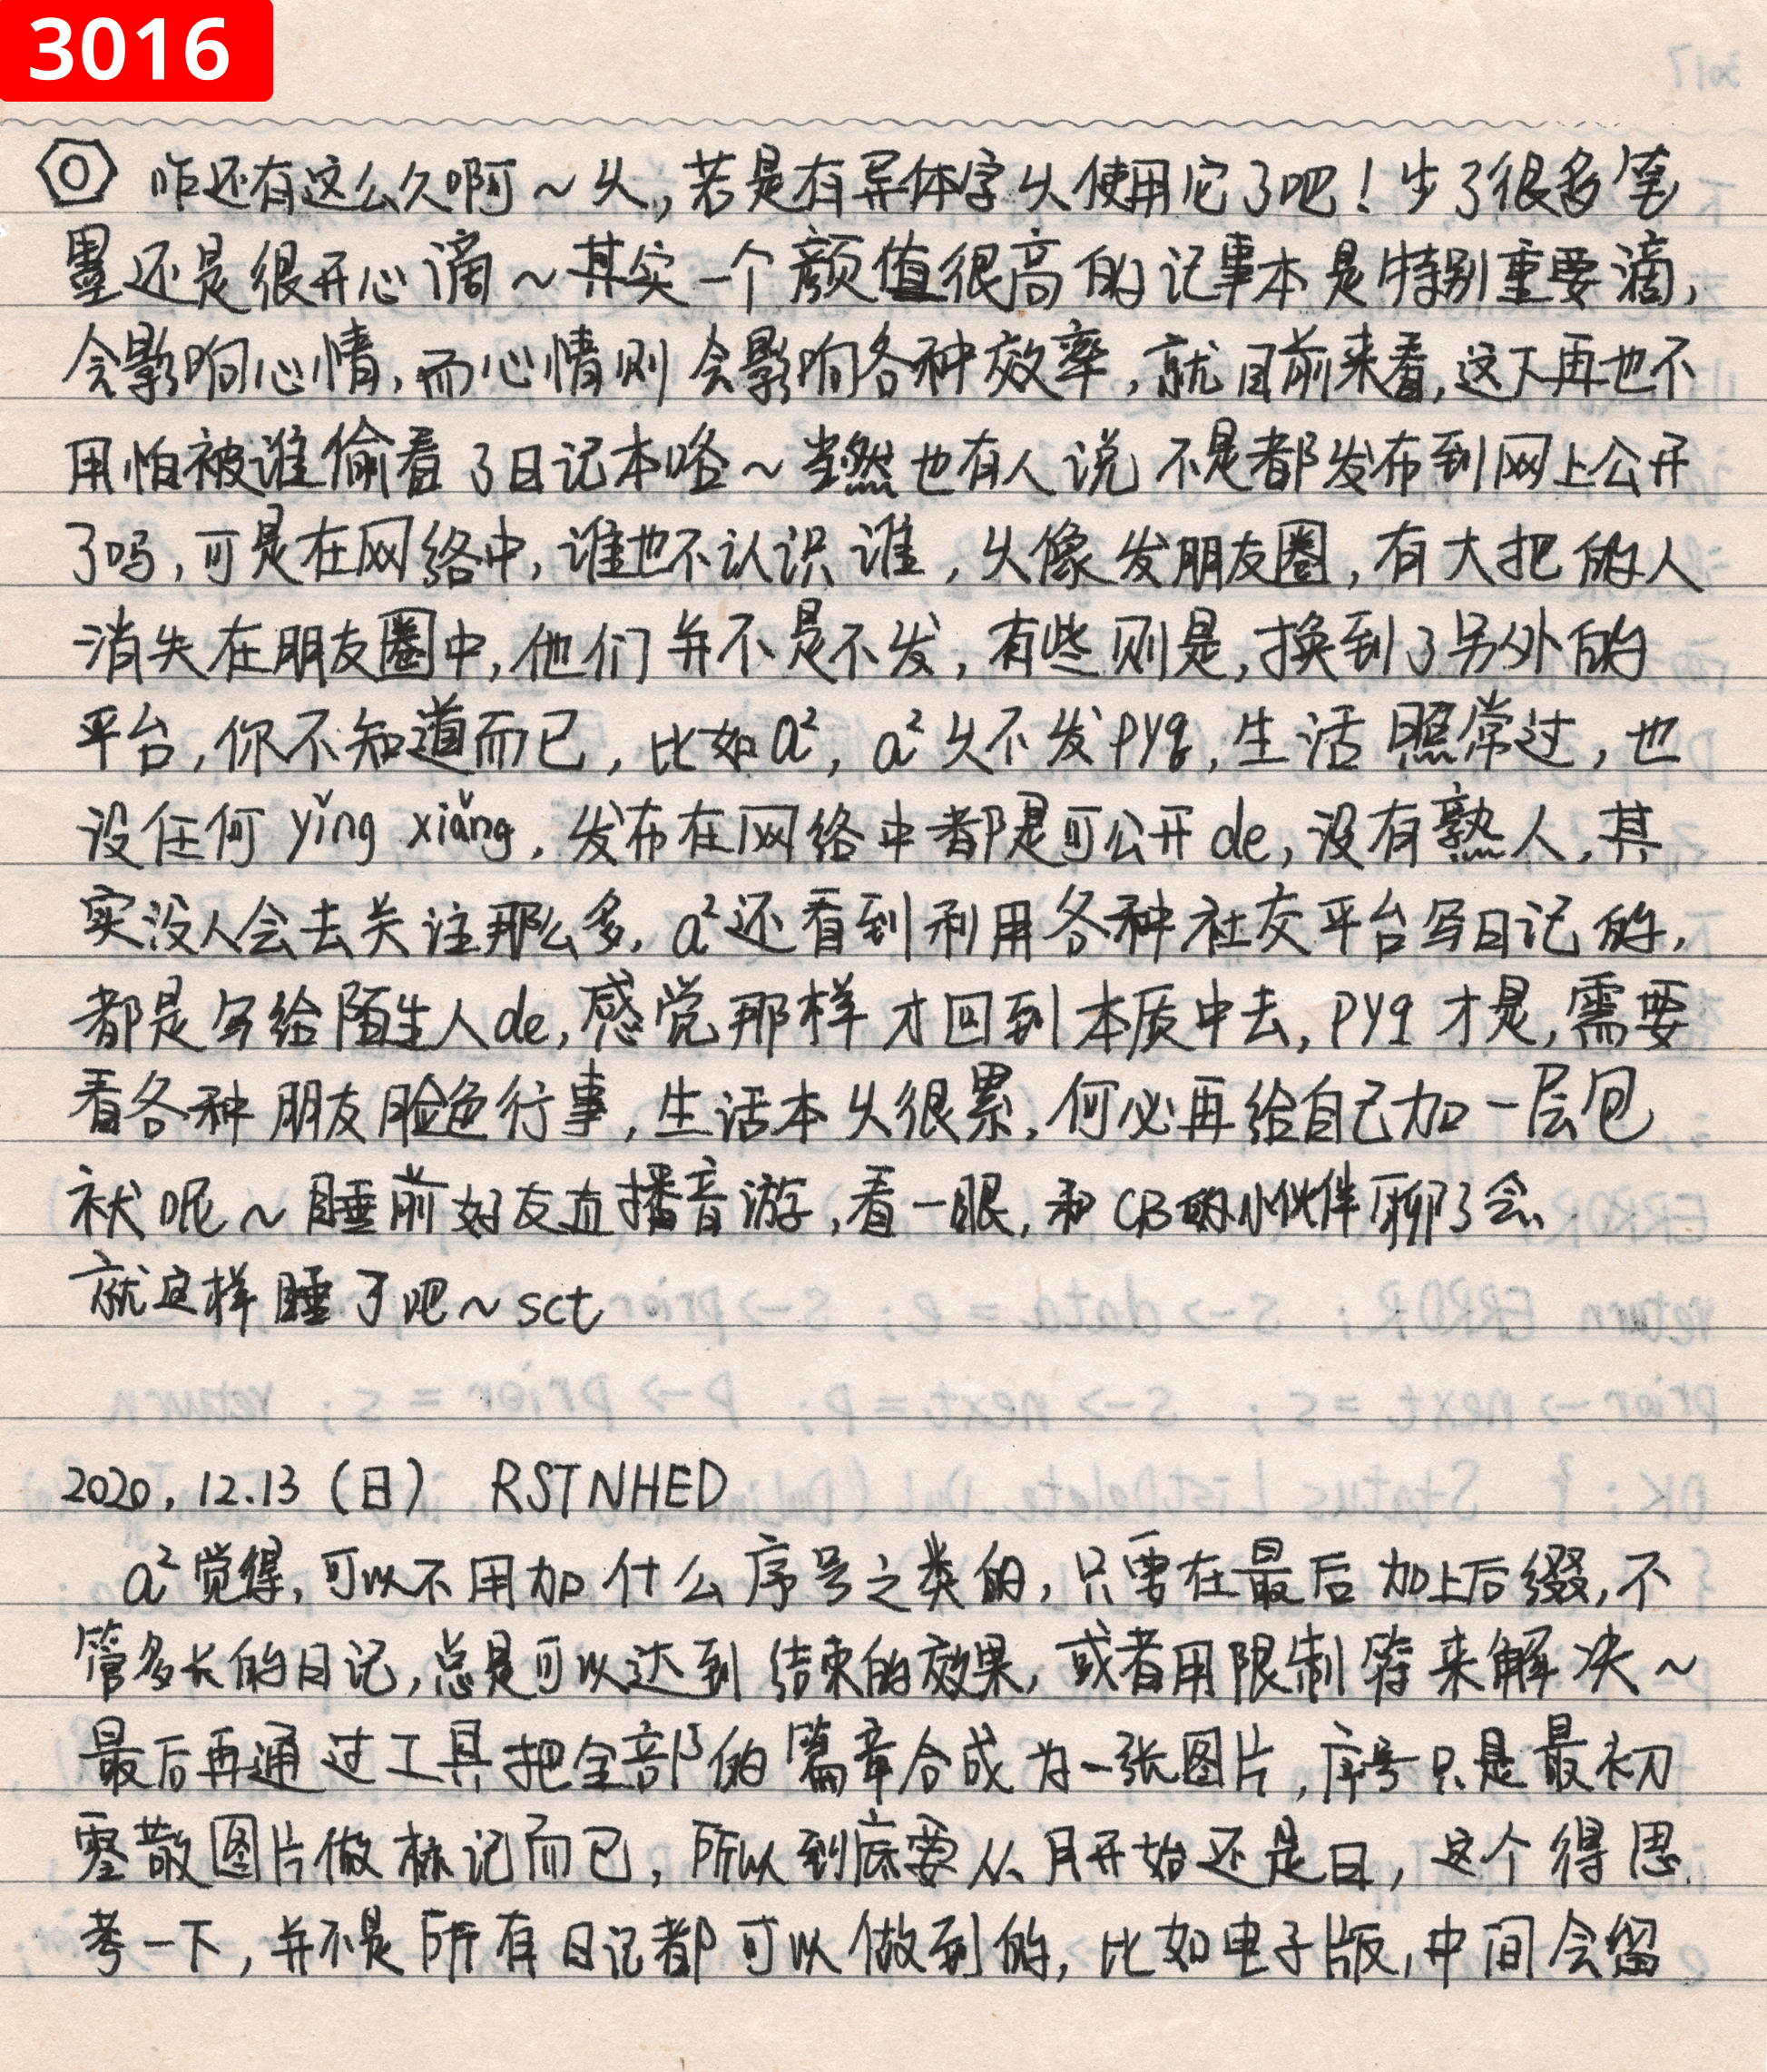 3016
咋还有这么久啊~乆，若是有异体字乆使用它了吧！少了很多笔
墨还是很开心滴~其实一个颜值很高的记事本是特别重要滴，
会影响心情，而心情则会影响各种效率，就目前来看，这下再也不
用怕被谁偷看了日记本咯~当然也有人说不是都发布到网上公开
了吗，可是在网络中，谁也不认识谁，乆像发朋友圈，有大把的人
消失在朋友圈中，他们并不是不发，有些则是，换到了另外的
平台，你不知道而已，比如a²，a²乆不发pyq，生活照常过，也
没任何yǐng xiǎng，发布在网络中都是可公开de，没有熟人，其
实没人会去关注那么多，a²还看到利用各种社交平台写日记的，
都是写给陌生人de，感觉那样才回到本质中去，pyq才是，需要
看各种朋友脸色行事，生活本乆很累，何必再给自己加一层包
袱呢~睡前好友直播音游，看一眼，和CB的小伙伴聊了会
就这样睡了吧~sct
2020.12.13（日） RSTNHED
a²觉得，可以不用加什么序号之类的，只要在最后加上后缀，不
管多长的日记，总是可以达到结束的效果，或者用限制符来解决~
最后再通过工具把全部的篇章合成为一张图片，序号只是最初
零散图片做标记而已，所以到底要从月开始还是日，这个得思
考一下，并不是所有日记都可以做到的，比如电子版，中间会留